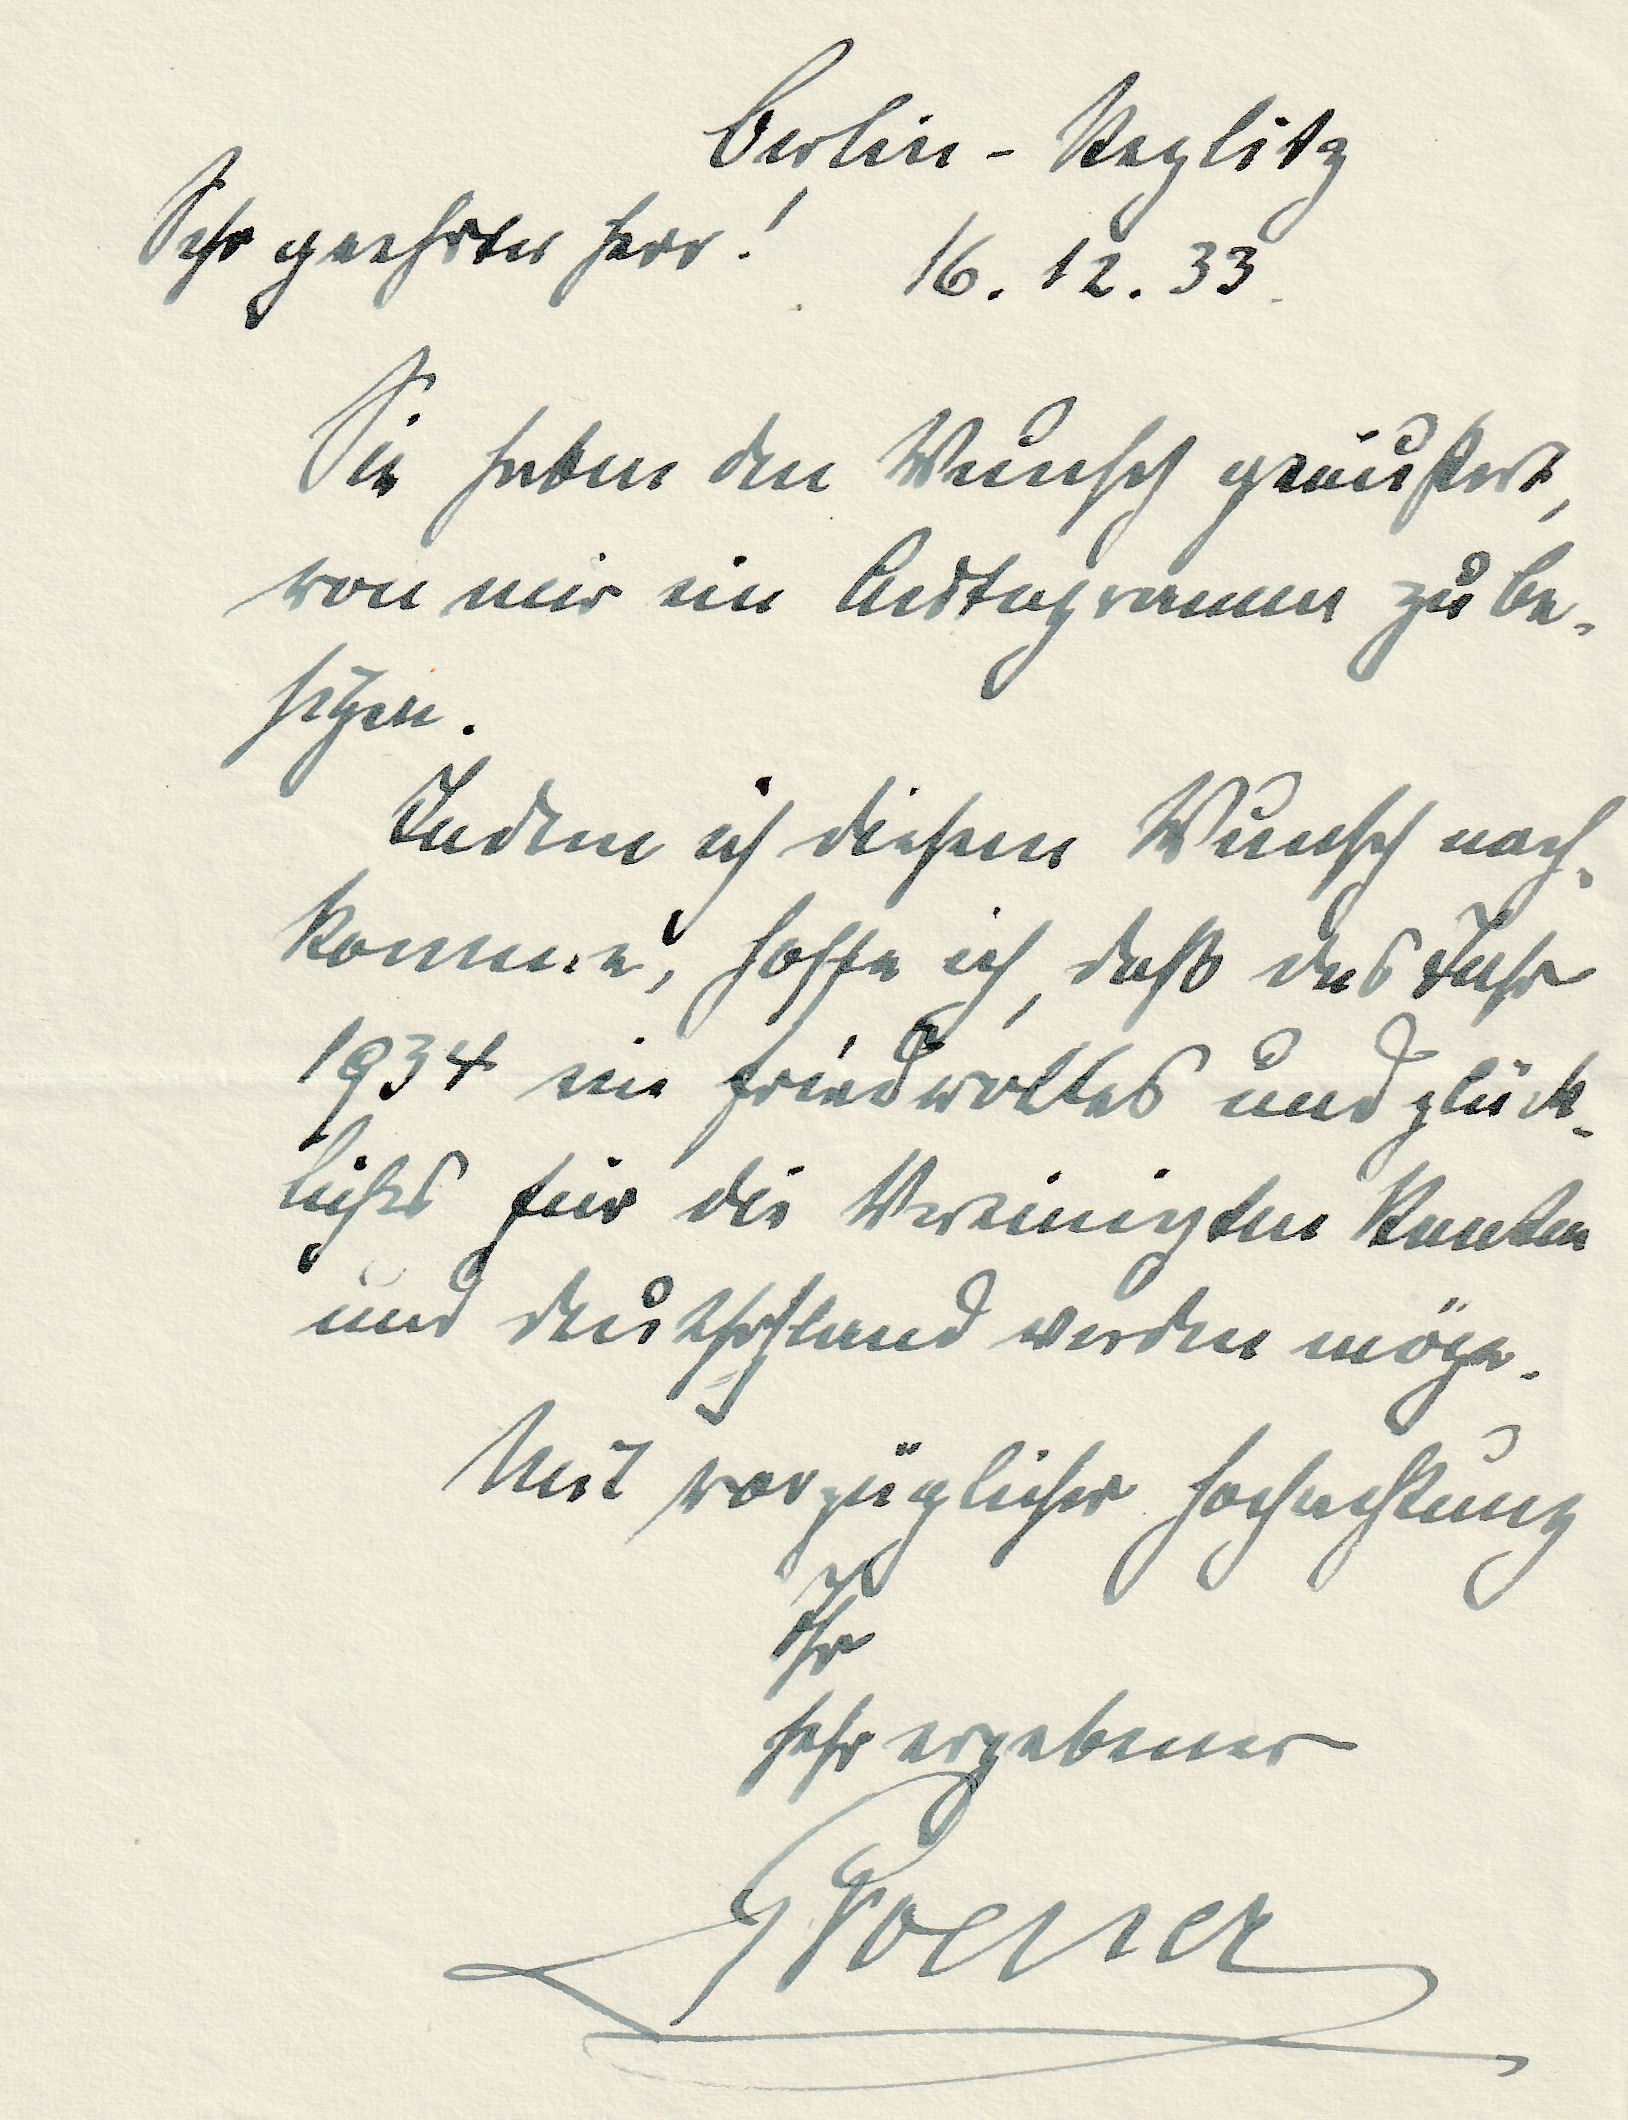 Berlin - Steglitz
Sehr geehrter Herr!
16. 12. 33.
Sie haben den Wunsch geäußert,
von mir ein Autogramm zu be-
sitzen.
Indem ich diesem Wunsch nach-
komme, hoffe ich, daß das Jahr
1934 ein friedvolles und glück-
liches für die Vereinigten Staaten
und Deutschland werden möge.
Mit vorzüglicher Hochachtung
Ihr
sehr ergebener